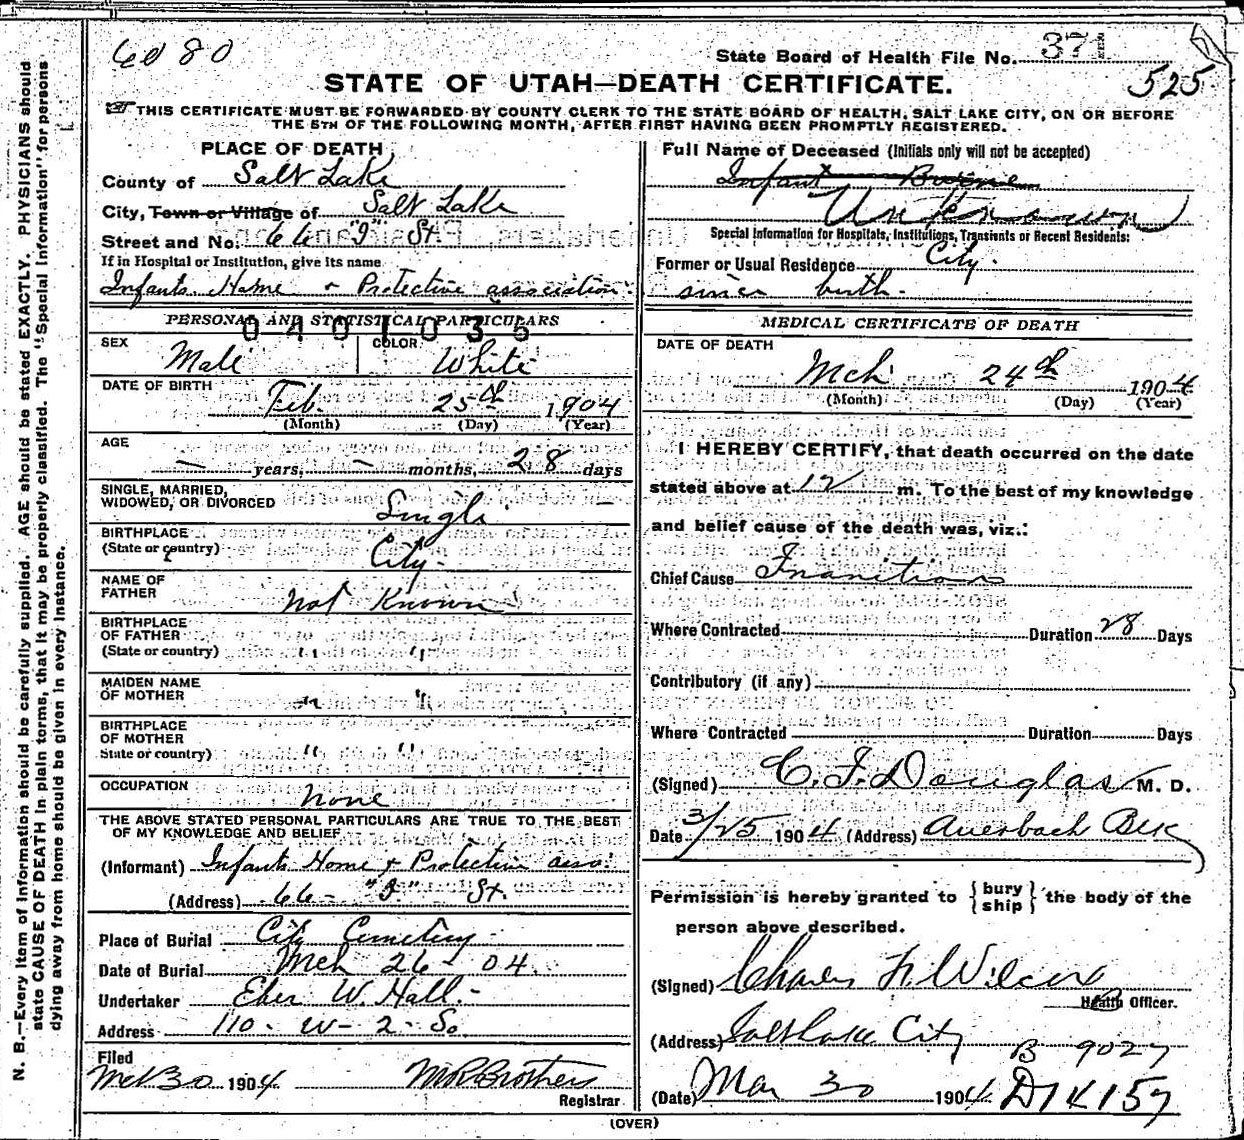 6080
State Board of Health File No. 371
525
STATE OF UTAH—DEATH CERTIFICATE.
THIS CERTIFICATE MUST BE FORWARDED BY COUNTY CLERK TO THE STATE BOARD OF HEALTH, SALT LAKE CITY, ON OR BEFORE
THE 5TH OF THE FOLLOWING MONTH, AFTER FIRST HAVING BEEN PROMPTLY REGISTERED.
PLACE OF DEATH
County of Salt Lake
City, Town or Village of Salt Lake
Street and No. 66 "I" St.
If in Hospital or Institution, give its name
Infants Home & Protective association.
PERSONAL AND STATISTICAL PARTICULARS
0401035
SEX Male COLOR White
DATE OF BIRTH Feb. 25th 1904
(Month) (Day) (Year)
AGE — years, — months, 28 days
SINGLE, MARRIED,
WIDOWED, OR DIVORCED Single
BIRTHPLACE
(State or country) City.
NAME OF
FATHER not Known
BIRTHPLACE
OF FATHER
(State or country) " "
MAIDEN NAME
OF MOTHER " "
BIRTHPLACE
OF MOTHER
State or country) " "
OCCUPATION none
THE ABOVE STATED PERSONAL PARTICULARS ARE TRUE TO THE BEST
OF MY KNOWLEDGE AND BELIEF
(Informant) Infants Home & Protective asso.
(Address) 66 - "I" St.
Place of Burial City Cemetery
Date of Burial Mch 26 - 04.
Undertaker Eber W. Hall.
Address 110 - W - 2 - So.
Filed
Mch 30 1904 M R Brothers
Registrar
Full Name of Deceased (Initials only will not be accepted)
Infant Bodine
Unknown
Special Information for Hospitals, Institutions, Transients or Recent Residents:
Former or Usual Residence City.
since birth.
MEDICAL CERTIFICATE OF DEATH
DATE OF DEATH
Mch 24th 1904
(Month) (Day) (Year)
I HEREBY CERTIFY, that death occurred on the date
stated above at 12 m. To the best of my knowledge
and belief cause of the death was, viz.:
Chief Cause Inanition
Where Contracted Duration 28 Days
Contributory (if any)
Where Contracted Duration Days
(Signed) C. F. Douglas M. D.
Date 3/25 1904 (Address) Auerbach Blk
Permission is hereby granted to {bury ship} the body of the
person above described.
(Signed) Charles F. Wilcox
Health Officer.
(Address) Salt Lake City
B 9027
(Date) Mar 30 1904 D14157
(OVER)
N. B.—Every item of information should be carefully supplied. AGE should be stated EXACTLY. PHYSICIANS should
state CAUSE OF DEATH in plain terms, that it may be properly classified. The "Special Information" for persons
dying away from home should be given in every instance.